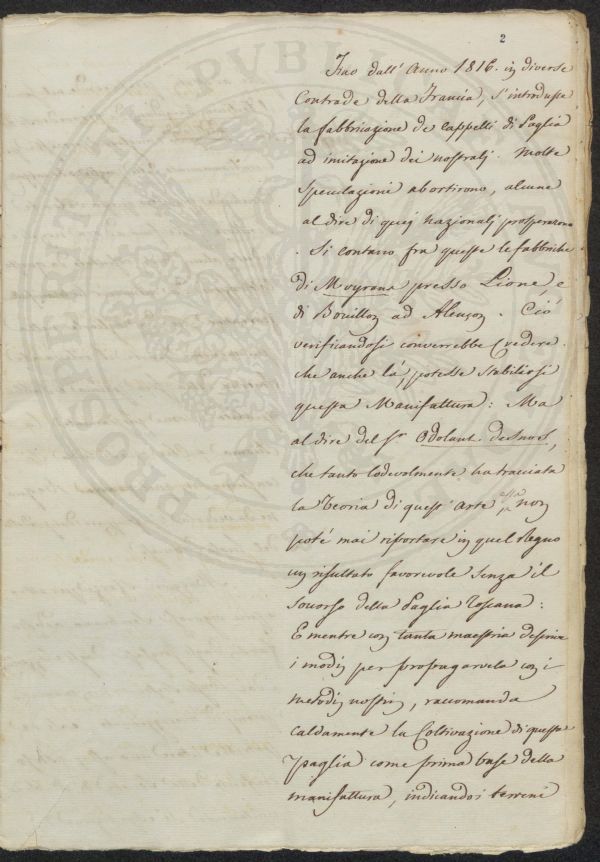 2
Fino dall' Anno 1816. in diverse
Contrade della Francia, s'introdusse
la fabbricazione de Cappelli di Paglia
ad imitazione dei nostralj. Molte
Speculazioni abortirono, alcune
al dire di quej Nazionalj prosperarono
. Si contano fra queste le fabbriche
di Moyrana presso Lione, e
di Bouillon ad Alençon. Ciò
verificandosi converrebbe Credere.
che anche là, potesse stabilirsi
questa Manifattura: Ma
al dire del Sr. Odolant-desnos,
che tanto lodevolmente ha tracciata
la Teoria di quest' arte, non
poté mai riportare in quel Regno
un risultato favorevole Senza il
Soccorso della Paglia Toscana:
E mentre con tanta maestria descrive
i modi per propagarvela con i
metodi nostri, raccomanda
caldamente la Coltivazione di questa
paglia come prima base della
manifattura, indicando i terreni
PVBLI